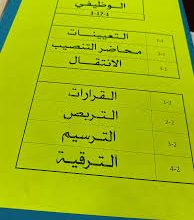 الوظيفي
1-17-1
التعيينات 1-1
محاضر التنصيب 2-1
الانتقال 3-1
القرارات 1-2
التربص 2-2
الترسيم 3-2
الترقية 4-2